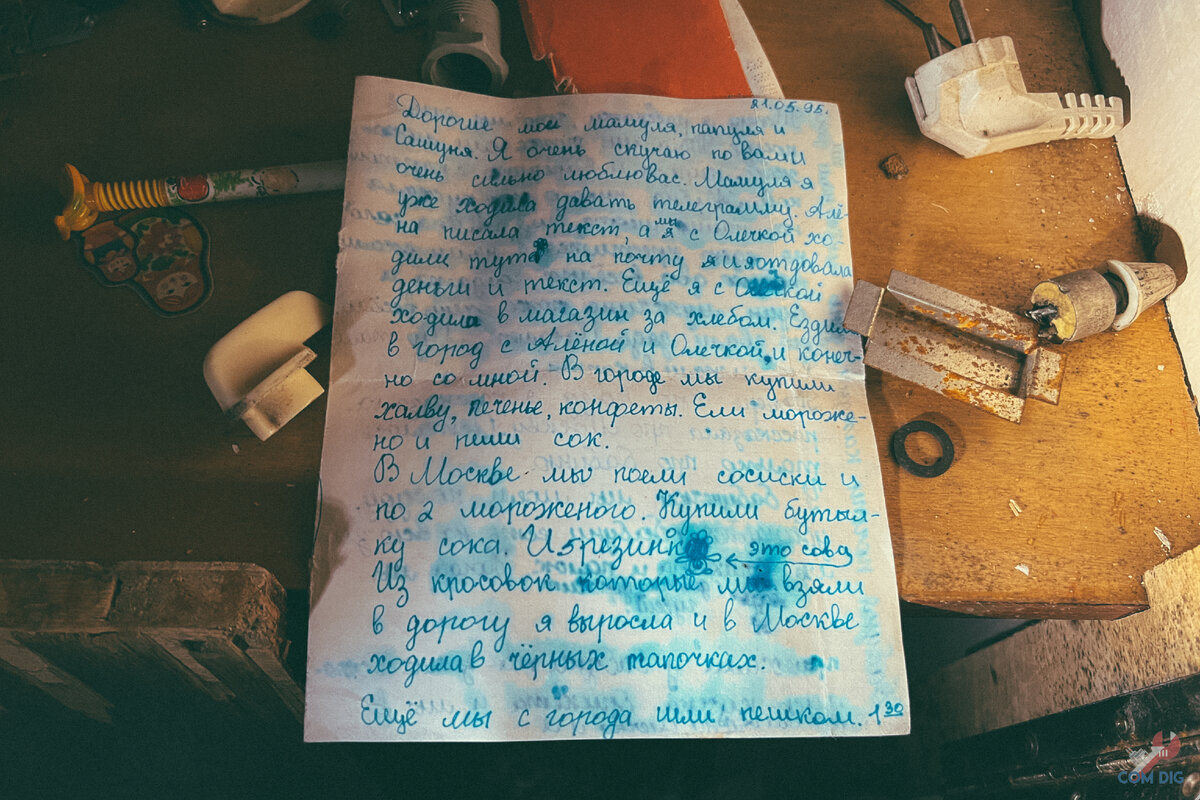 21.05.95.
Дорогие мои мамуля, папуля и
Сашуня. Я очень скучаю по вами
очень сильно люблю вас. Мамуля я
уже ходила давать телеграмму. Алё-
на писала текст, а мы с Олечкой хо-
дили туто на почту я и я отдовала
деньги и текст. Ещё я с Олечкой
ходила в магазин за хлебом. Ездили
в город с Алёной и Олечкой, и конеч-
но со мной. В городе мы купили
халву, печенье, конфеты. Ели мороже-
но и пили сок.
В Москве мы поели сосиски и
по 2 мороженого. Купили бутыл-
ку сока. И брезинко это сова
Из кросовок которые мы взяли
в дорогу я выросла и в Москве
ходила в чёрных тапочках.
Ещё мы с города шли пешком. 1 30
COM DIG